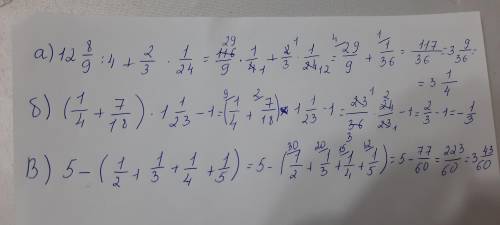 а) 12 8/9 : 4 + 2/3 · 1/24 = 116/9 · 1/4 + 2/3 · 1/24 = 29/9 + 1/36 = 117/36 = 3 9/36 = 3 1/4
б) (1/4 + 7/18) · 1 1/23 - 1 = (1/4 + 7/18) · 1 1/23 - 1 = 23/36 · 24/23 - 1 = 2/3 - 1 = - 1/3
В) 5 - (1/2 + 1/3 + 1/4 + 1/5) = 5 - (1/2 + 1/3 + 1/4 + 1/5) = 5 - 77/60 = 223/60 = 3 43/60